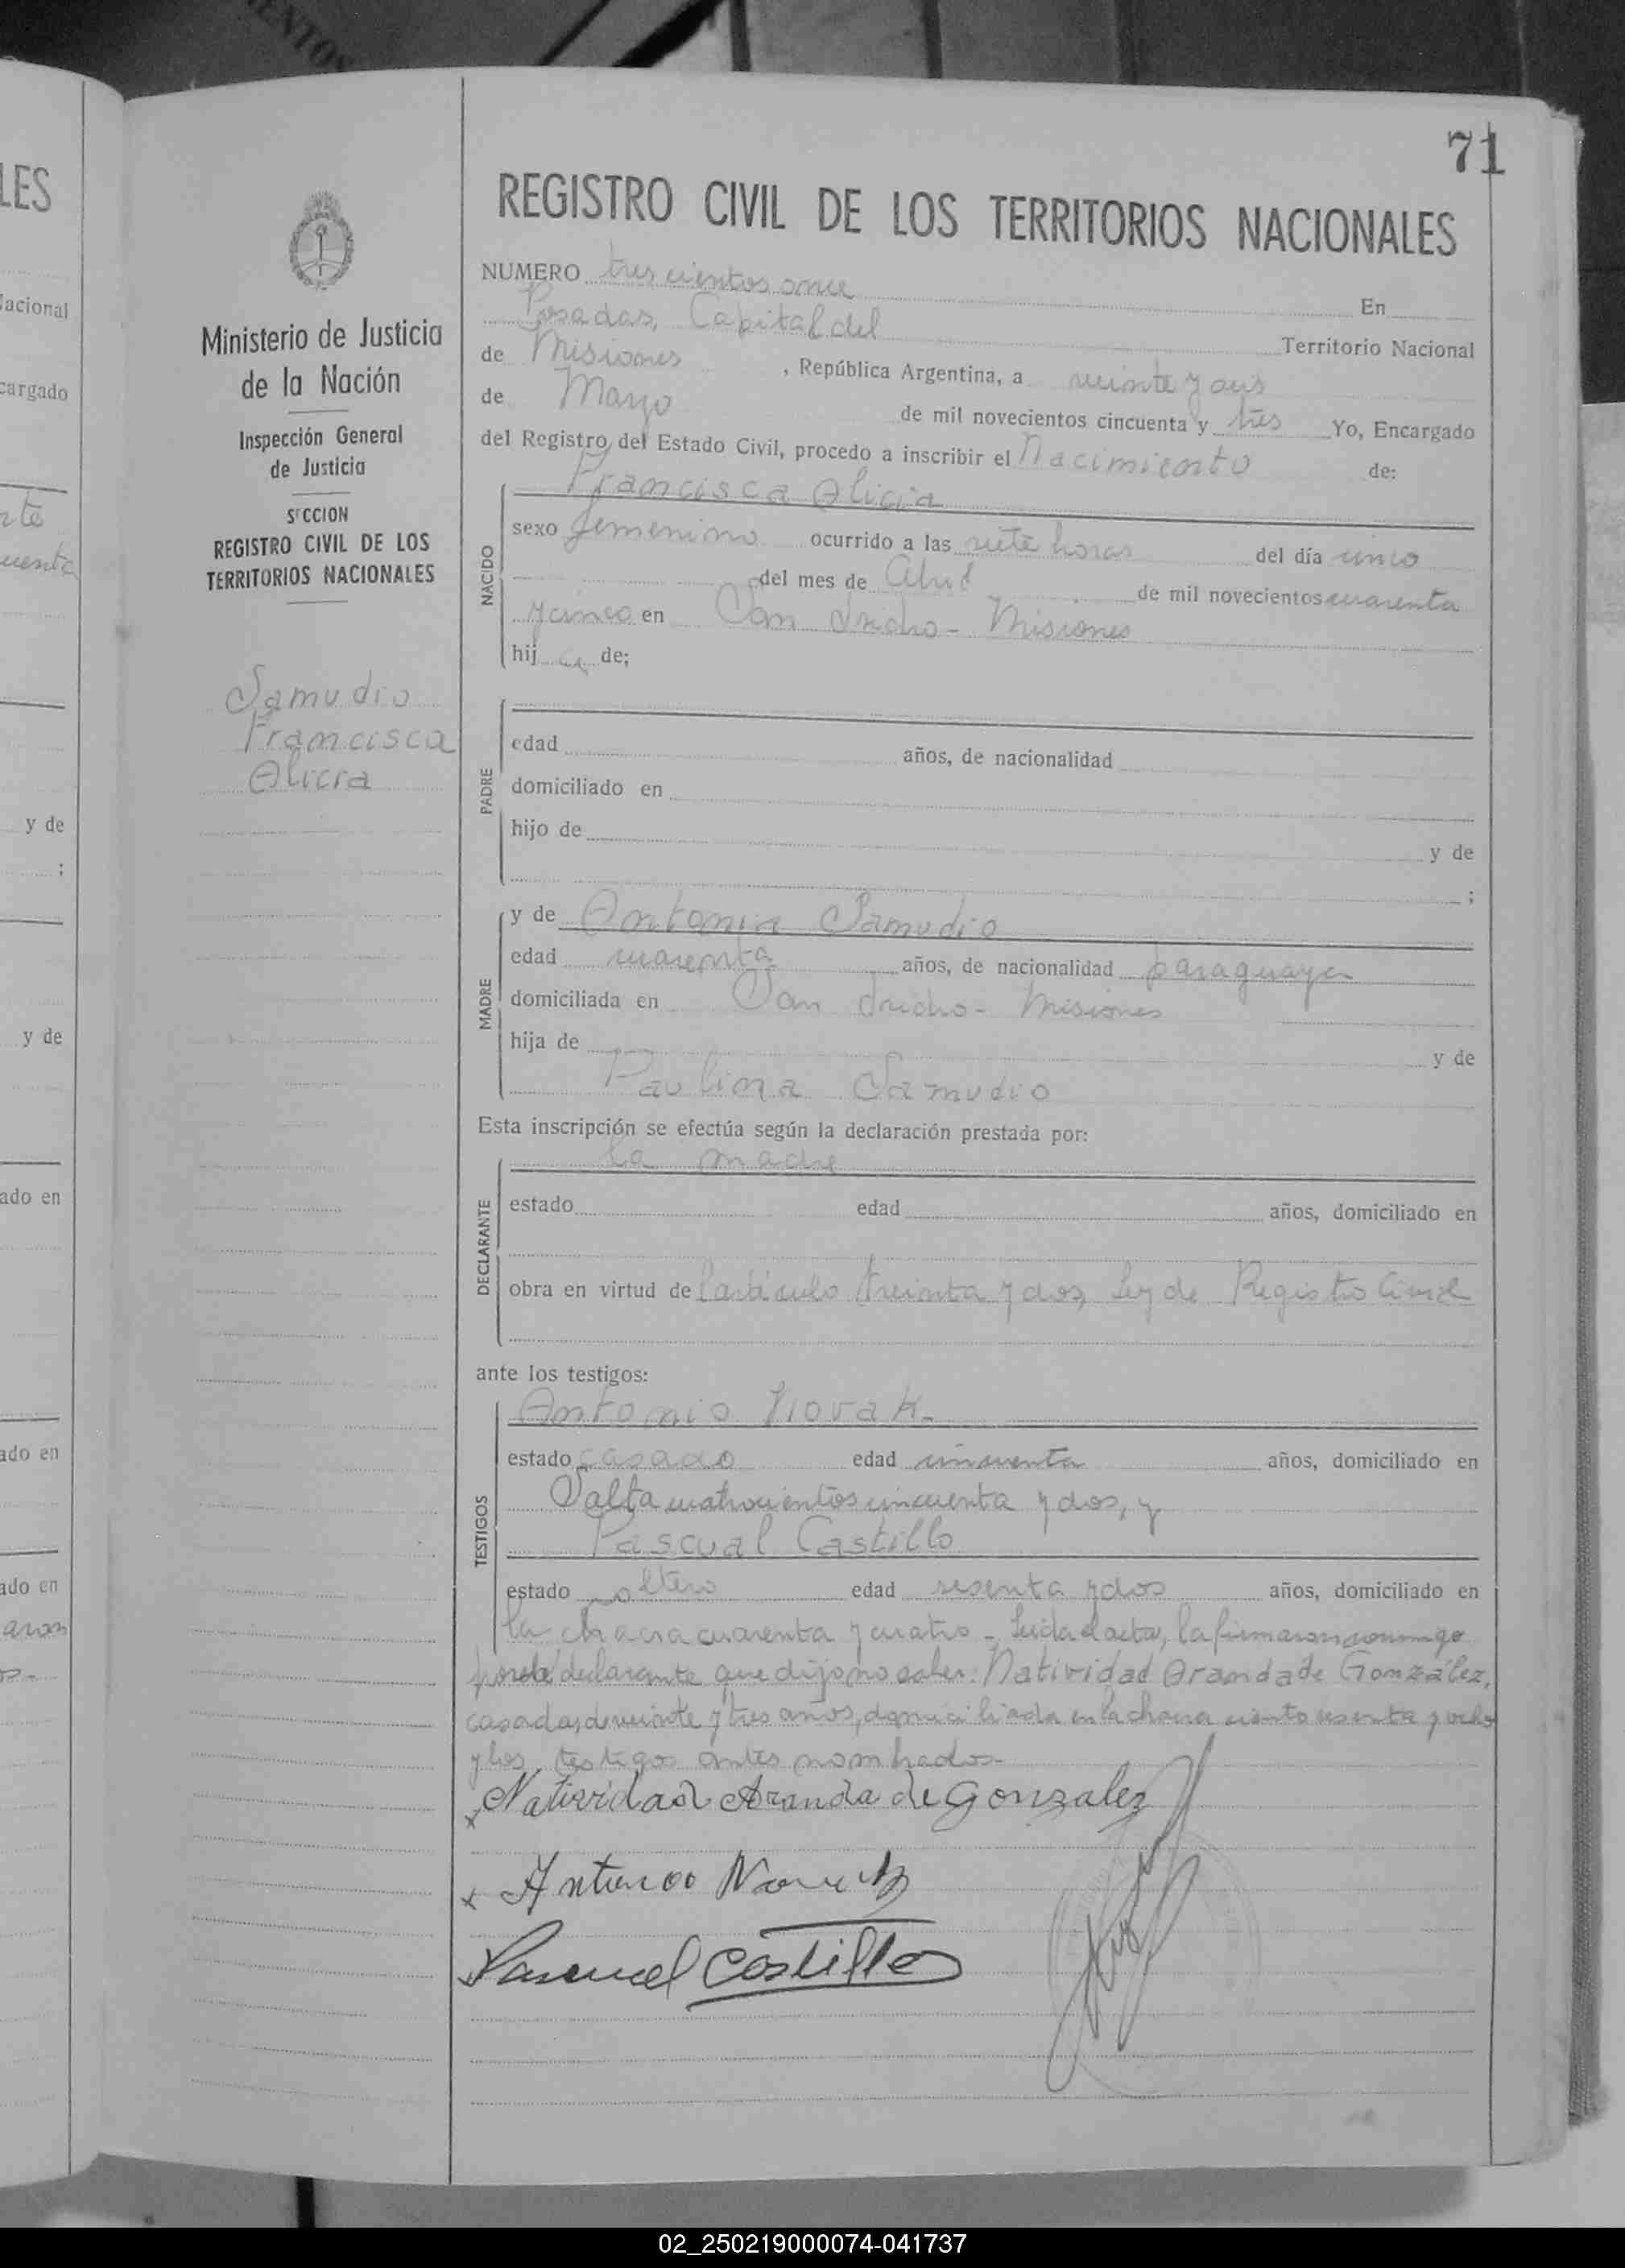 71
LES
acional
cargado
y de
;
y de
ado en
ado en
ado en
Ministerio de Justicia
de la Nación
Inspección General
de Justicia
SECCION
REGISTRO CIVIL DE LOS
TERRITORIOS NACIONALES
Samudio
Francisca
Alicia
REGISTRO CIVIL DE LOS TERRITORIOS NACIONALES
NUMERO trescientos once En
Posadas, Capital del Territorio Nacional
de Misiones, República Argentina, a veinte y seis
de Marzo de mil novecientos cincuenta y tres Yo, Encargado
del Registro del Estado Civil, procedo a inscribir el Nacimiento de:
Francisca Alicia
NACIDO
sexo femenino ocurrido a las siete horas del día cinco
del mes de Abril de mil novecientos cuarenta
y cinco en San Isidro - Misiones
hija de;
PADRE
edad años, de nacionalidad
domiciliado en
hijo de y de
;
MADRE
y de Antonia Samudio
edad cuarenta años, de nacionalidad paraguaya
domiciliada en San Isidro - Misiones
hija de y de
Paulina Samudio
Esta inscripción se efectúa según la declaración prestada por:
la madre
DECLARANTE
estado edad años, domiciliado en
obra en virtud de l artículo treinta y dos, Ley de Registro Civil
ante los testigos:
TESTIGOS
Antonio Novak.
estado casado edad cincuenta años, domiciliado en
Salta cuatrocientos cincuenta y dos, y
Pascual Castillo
estado soltero edad sesenta y dos años, domiciliado en
la chacra cuarenta y cuatro - Leida el acta, la firmaron conmigo
por la declarante que dijo no saber: Natividad Aranda de González,
casada, de veinte y tres años, domiciliada en la chacra ciento sesenta y ocho
y los testigos antes nombrados -
x Natividad Aranda de Gonzalez
x Antonio Novak
Pascual Castillo
02_250219000074-041737